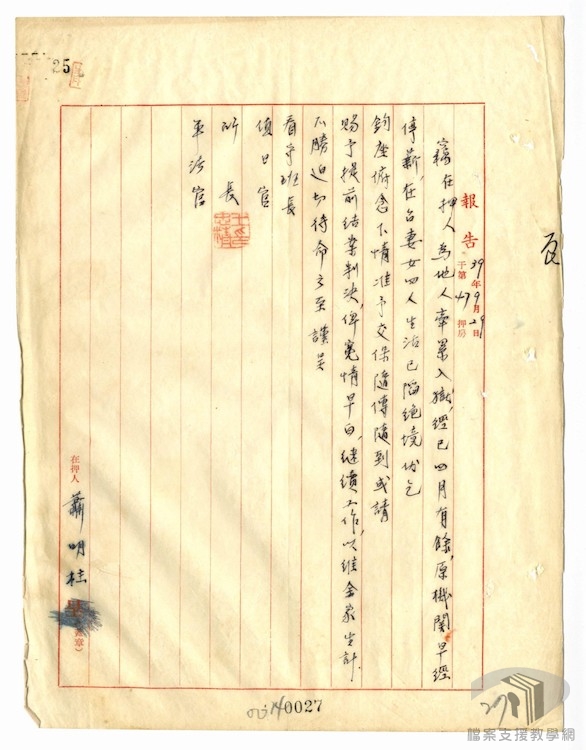 報告
39年9月29日
于第47押房
竊在押人為地人牽累入獄經已四月有餘原機關早經
停薪在台妻女四人生活已陷絕境伏乞
鈞座俯念下情准予交保隨傳隨到或請
賜予提前結案判決俾冤情早白繼續工作以維全家生計
不勝迫切待命之至謹呈
看守班長
值日官
所長
軍法官
在押人 蕭明柱
25
0027
27
檔案支援教學網